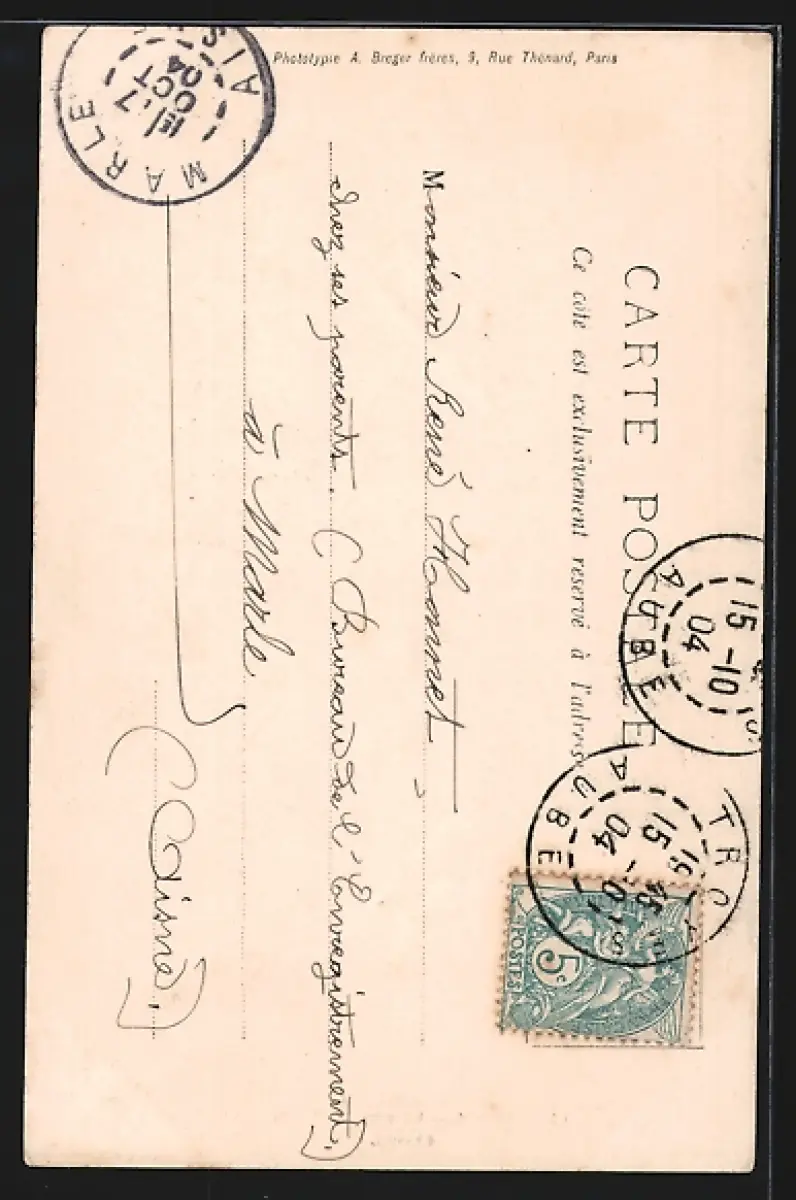 Phototypie A. Breger frères, 9, Rue Thénard, Paris
CARTE POSTALE
Ce côté est exclusivement réservé à l'adresse
Monsieur René Hannet
chez ses parents. (Bureau de l'Enregistrement)
à Marle
(Aisne).
MARLE AIS
17
OCT
04
AUBE
15-10
04
TRO S
AUBE
19 45
15-10
04
5c
POSTES